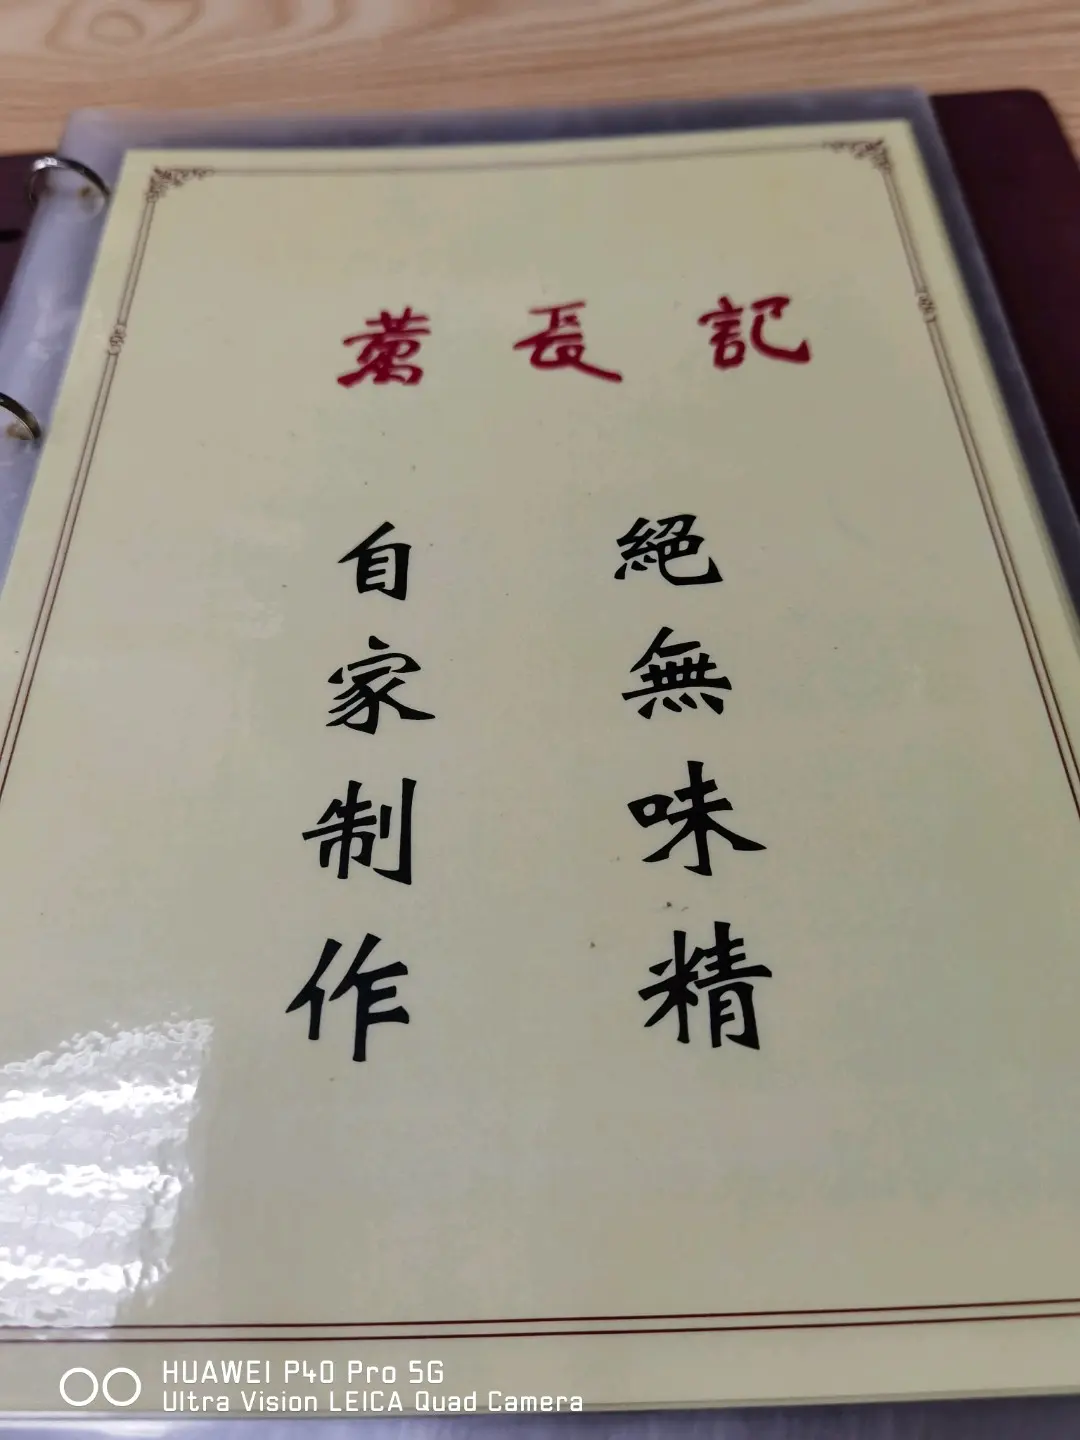 萬長記
絕無味精
自家制作
HUAWEI P40 Pro 5G
Ultra Vision LEICA Quad Camera